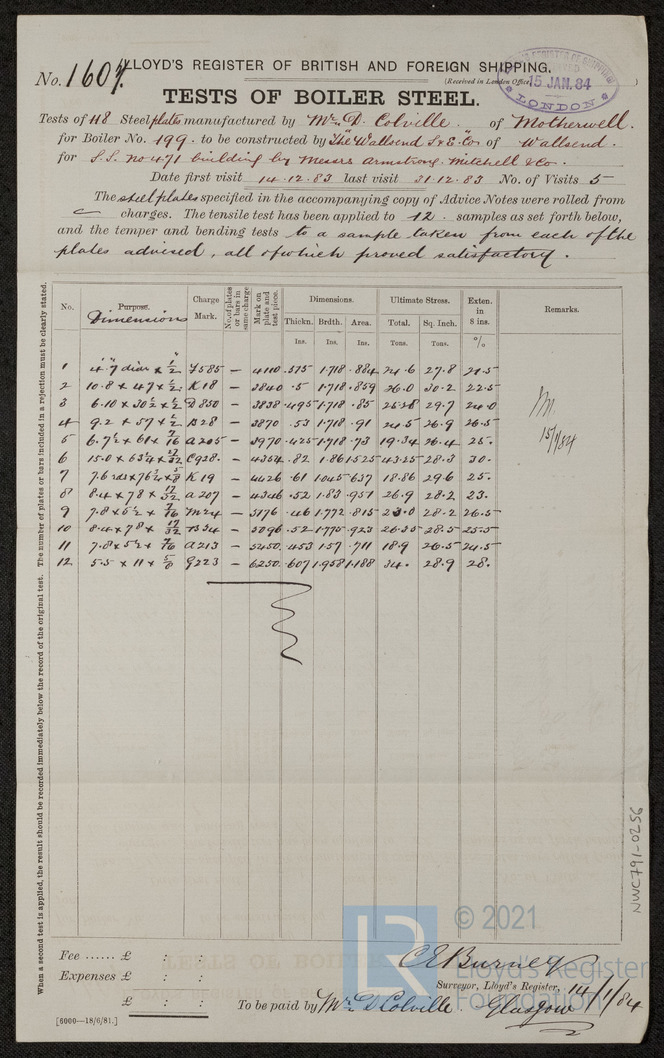 No. 1607. LLOYD'S REGISTER OF BRITISH AND FOREIGN SHIPPING,
(Received in London Office, 15 JAN. 84 )
LONDON
TESTS OF BOILER STEEL.
Tests of 118 Steel plates manufactured by Mr. D. Colville. of Motherwell.
for Boiler No. 199. to be constructed by The Wallsend S & E. Co of Wallsend.
for S.S. No 471 building by Messrs Armstrong. Mitchell & Co.
Date first visit 14.12.83 last visit 31.12.83 No. of Visits 5
The steel plates specified in the accompanying copy of Advice Notes were rolled from
charges. The tensile test has been applied to 12. samples as set forth below,
and the temper and bending tests to a sample taken from each of the
plates advised, all of which proved satisfactory.
No. Purpose. Dimensions Charge Mark. No. of plates or bars in same charge Mark on plate and test piece. Dimensions. Ultimate Stress. Exten. in 8 ins. Remarks.
Thickn. Brdth. Area. Total. Sq. Inch. %
Ins. Ins. Ins. Tons. Tons.
1 4'.7" diar x 1/2" Y585 — 4110 .515 1.718 .884 24.6 27.8 21.5
2 10.8 x 47 x 1/2 K18 — 3840 .5 1.718 .859 26.0 30.2 22.5
3 6.10 x 30 1/2 x 1/2 D850 — 3838 .495 1.718 .85 25.28 29.7 24.0
4 9.2 x 57 x 1/2 B28 — 3870 .53 1.718 .91 24.5 26.9 26.5
5 6.7 1/2 x 61 x 7/16 A205 — 3970 .425 1.718 .73 19.34 26.4 25.
6 15.0 x 63 1/4 x 27/32 C928. — 4354 .82 1.86 1.525 43.25 28.3 30.
7 7.6 rds x 76 3/4 x 5/8 K19 — 4426 .61 1.045 .637 18.86 29.6 25.
8 8.4 x 78 x 17/32 A207 — 4346 .52 1.83 .951 26.9 28.2 23.
9 7.8 x 5 1/2 x 7/16 M24 — 5176 .46 1.772 .815 23.0 28.2 26.5
10 8.4 x 78 x 17/32 B34 — 5096 .52 1.775 .923 26.35 28.5 25.5
11 7.8 x 5 1/2 x 7/16 A213 — 5450 .453 1.57 .711 18.9 26.5 24.5
12 5.5 x 11 x 5/8 G223 — 6250 .607 1.958 1.188 34. 28.9 28.
15/1/84
When a second test is applied, the result should be recorded immediately below the record of the original test. The number of plates or bars included in a rejection must be clearly stated.
NWC791-0256
Fee ...... £ : :
Expenses £ : :
£ : :
C E Burney
Surveyor, Lloyd's Register, 14/1/84
To be paid by Mr. D Colville. Glasgow
[6000—18/6/81.]
LR
© 2021
Lloyd's Register
Foundation